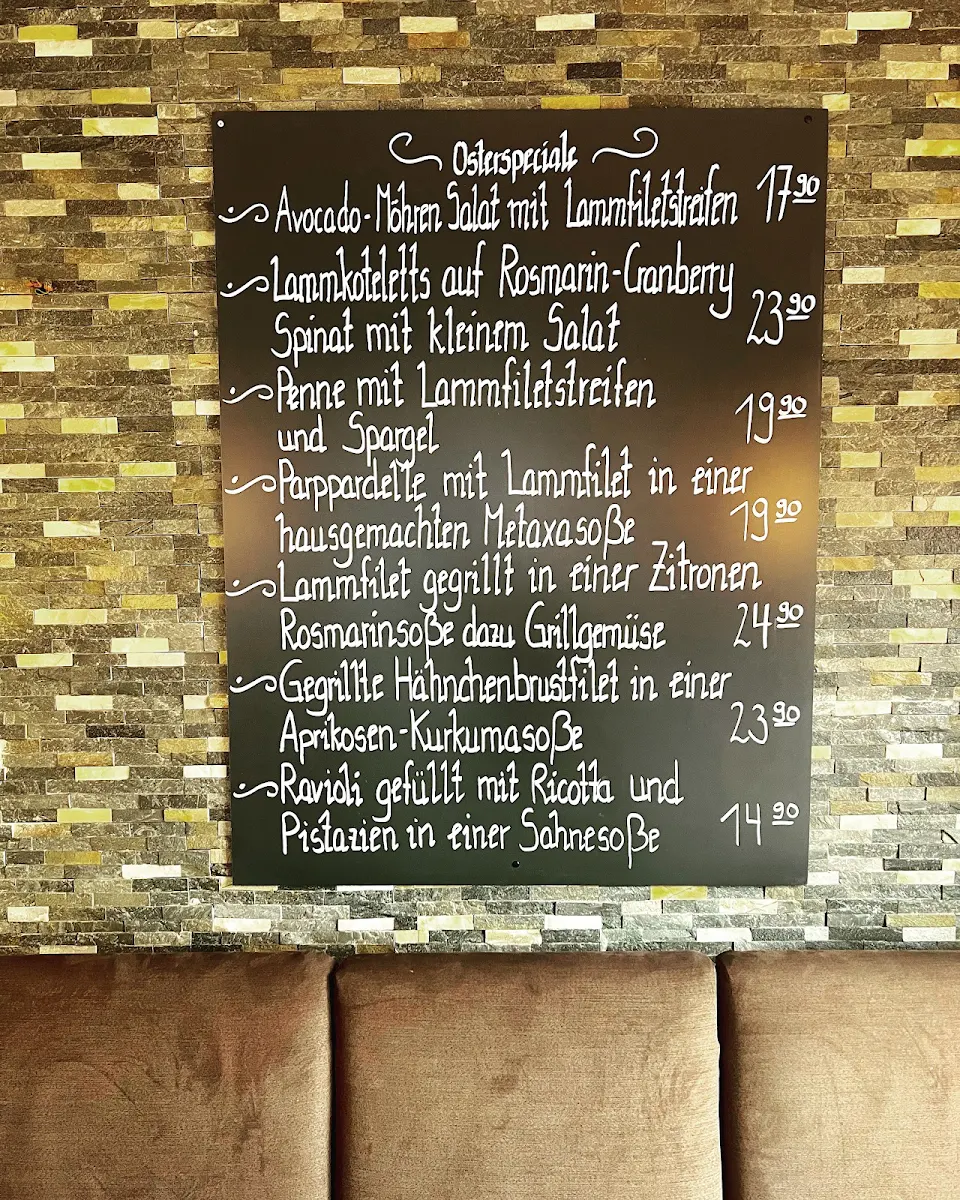 Osterspeciale
Avocado-Möhren Salat mit Lammfiletstreifen 17 90
Lammkoteletts auf Rosmarin-Cranberry
Spinat mit kleinem Salat 23 90
Penne mit Lammfiletstreifen
und Spargel 19 90
Parppardelle mit Lammfilet in einer
hausgemachten Metaxasoße 19 90
Lammfilet gegrillt in einer Zitronen
Rosmarinsoße dazu Grillgemüse 24 90
Gegrillte Hähnchenbrustfilet in einer
Aprikosen-Kurkumasoße 23 90
Ravioli gefüllt mit Ricotta und
Pistazien in einer Sahnesoße 14 90